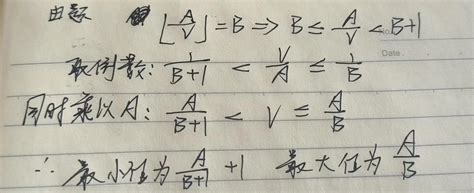 由题 ⌊A/V⌋ = B ⇒ B ≤ A/V < B+1
取倒数: 1/(B+1) < V/A ≤ 1/B
同时乘以A: A/(B+1) < V ≤ A/B
∴ 最小值为 A/(B+1) +1 最大值为 A/B